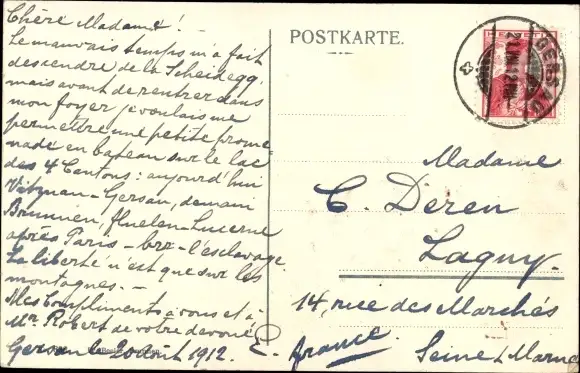 Chère Madame! -
Le mauvais temps m'a fait
descendre de la Scheidegg,
mais avant de rentrer dans
mon foyer je voulais me
permettre une petite prome-
nade en bateau sur le lac
des 4 Cantons: aujourd'hui
Vitznau - Gersau, demain
Brunnen, Fluelen - Lucerne
après Paris - brr - l'esclavage.
La liberté n'est que sur les
montagnes. -
Mes Compliments à vous et à
Mr. Robert de votre dévoué
Gersau le 20 août 1912. E.
POSTKARTE.
GERSAU
Madame
C. Deren
Lagny.
14, rue des Marchés
Seine & Marne
France